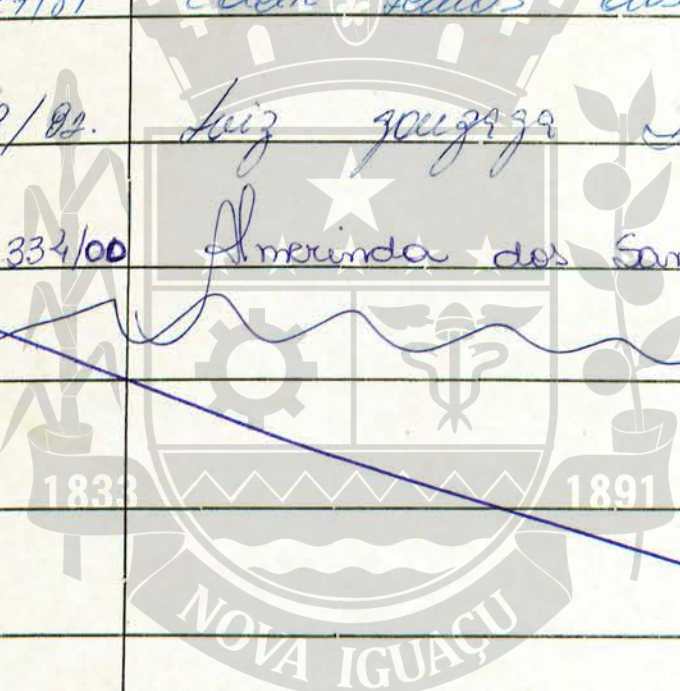 /92. Luiz gonzaga
334/00 Almerinda dos San
1833 1891
NOVA IGUAÇU